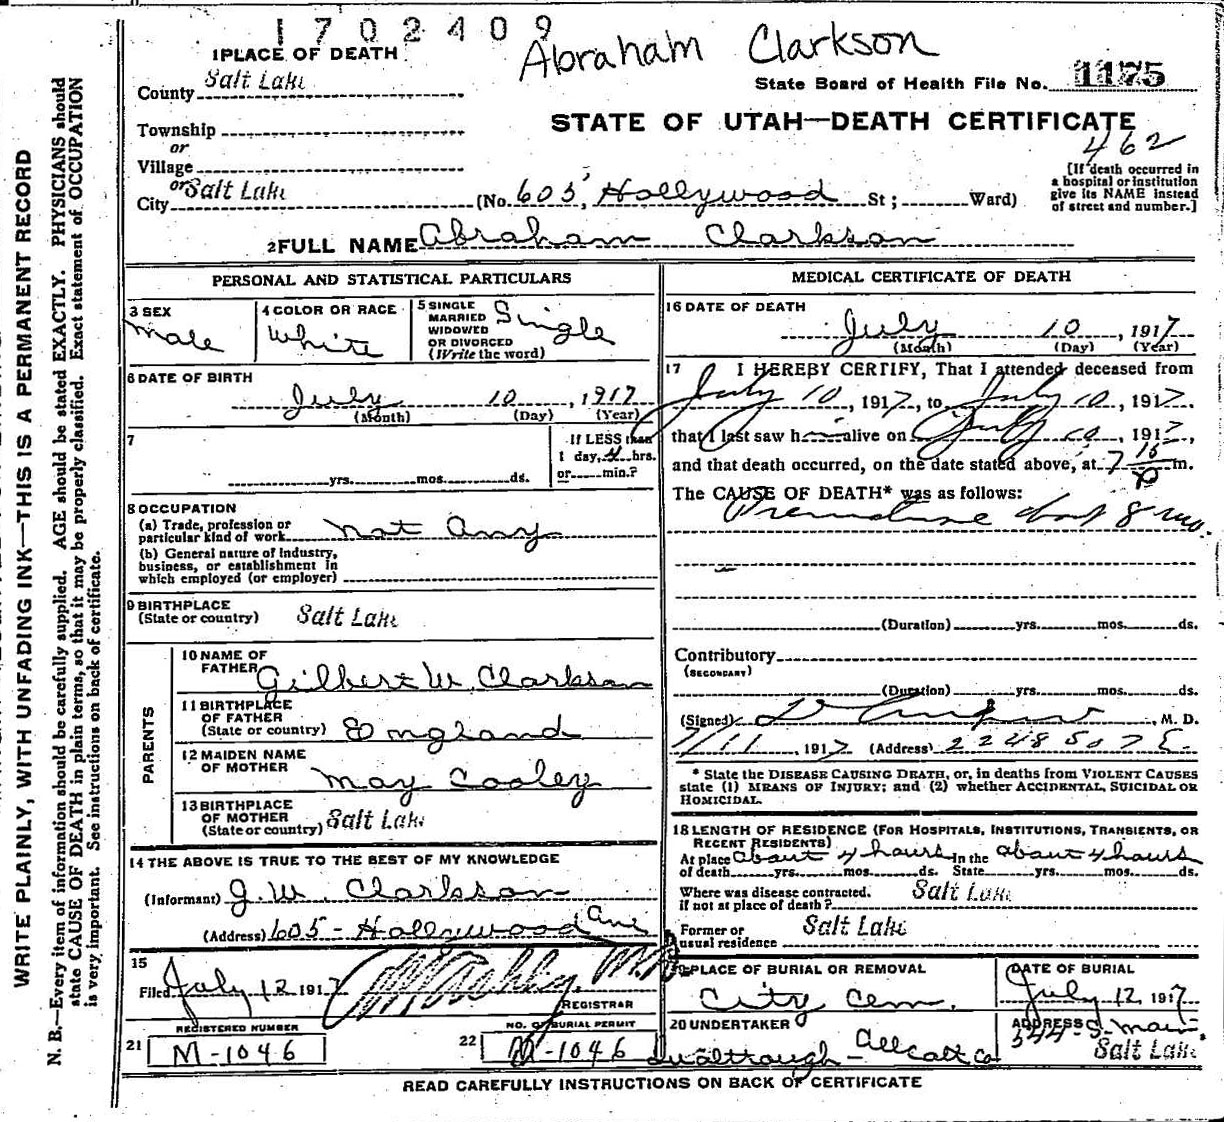 1702409
Abraham Clarkson
1 PLACE OF DEATH
County Salt Lake
State Board of Health File No. 1175
Township
or
STATE OF UTAH—DEATH CERTIFICATE
462
Village
or
City Salt Lake (No. 605, Hollywood St; Ward)
[If death occurred in
a hospital or institution
give its NAME instead
of street and number.]
2 FULL NAME Abraham Clarkson
PERSONAL AND STATISTICAL PARTICULARS
3 SEX
Male
4 COLOR OR RACE
White
5 SINGLE
MARRIED
WIDOWED
OR DIVORCED
(Write the word)
Single
6 DATE OF BIRTH
July 10, 1917
(Month) (Day) (Year)
7
yrs. mos. ds.
If LESS than
1 day, 4 hrs.
or min.?
8 OCCUPATION
(a) Trade, profession or
particular kind of work not any
(b) General nature of industry,
business, or establishment in
which employed (or employer)
9 BIRTHPLACE
(State or country) Salt Lake
PARENTS
10 NAME OF
FATHER Gilbert W. Clarkson
11 BIRTHPLACE
OF FATHER
(State or country) England
12 MAIDEN NAME
OF MOTHER May Cooley
13 BIRTHPLACE
OF MOTHER
(State or country) Salt Lake
14 THE ABOVE IS TRUE TO THE BEST OF MY KNOWLEDGE
(Informant) G. W. Clarkson
(Address) 605 - Hollywood Ave
15
Filed July 12 1917
REGISTRAR
REGISTERED NUMBER
21 M-1046
NO. OF BURIAL PERMIT
22 M-1046
MEDICAL CERTIFICATE OF DEATH
16 DATE OF DEATH
July 10, 1917
(Month) (Day) (Year)
17 I HEREBY CERTIFY, That I attended deceased from
July 10, 1917, to July 10, 1917,
that I last saw him alive on July 10, 1917,
and that death occurred, on the date stated above, at 7 15 P m.
The CAUSE OF DEATH* was as follows:
Premature about 8 mo.
(Duration) yrs. mos. ds.
Contributory
(SECONDARY)
(Duration) yrs. mos. ds.
(Signed) M. D.
7/11, 1917 (Address) 2248 So 7 E.
* State the DISEASE CAUSING DEATH, or, in deaths from VIOLENT CAUSES
state (1) MEANS OF INJURY; and (2) whether ACCIDENTAL, SUICIDAL OR
HOMICIDAL.
18 LENGTH OF RESIDENCE (FOR HOSPITALS, INSTITUTIONS, TRANSIENTS, OR
RECENT RESIDENTS)
At place about 4 hours In the about 4 hours
of death yrs. mos. ds. State yrs. mos. ds.
Where was disease contracted, Salt Lake
if not at place of death?
Former or Salt Lake
usual residence
19 PLACE OF BURIAL OR REMOVAL
City Cem.
DATE OF BURIAL
July 12, 1917
20 UNDERTAKER
ADDRESS
344 S. Main
Salt Lake
READ CAREFULLY INSTRUCTIONS ON BACK OF CERTIFICATE
WRITE PLAINLY, WITH UNFADING INK—THIS IS A PERMANENT RECORD
N. B.—Every item of information should be carefully supplied. AGE should be stated EXACTLY. PHYSICIANS should
state CAUSE OF DEATH in plain terms, so that it may be properly classified. Exact statement of OCCUPATION
is very important. See instructions on back of certificate.